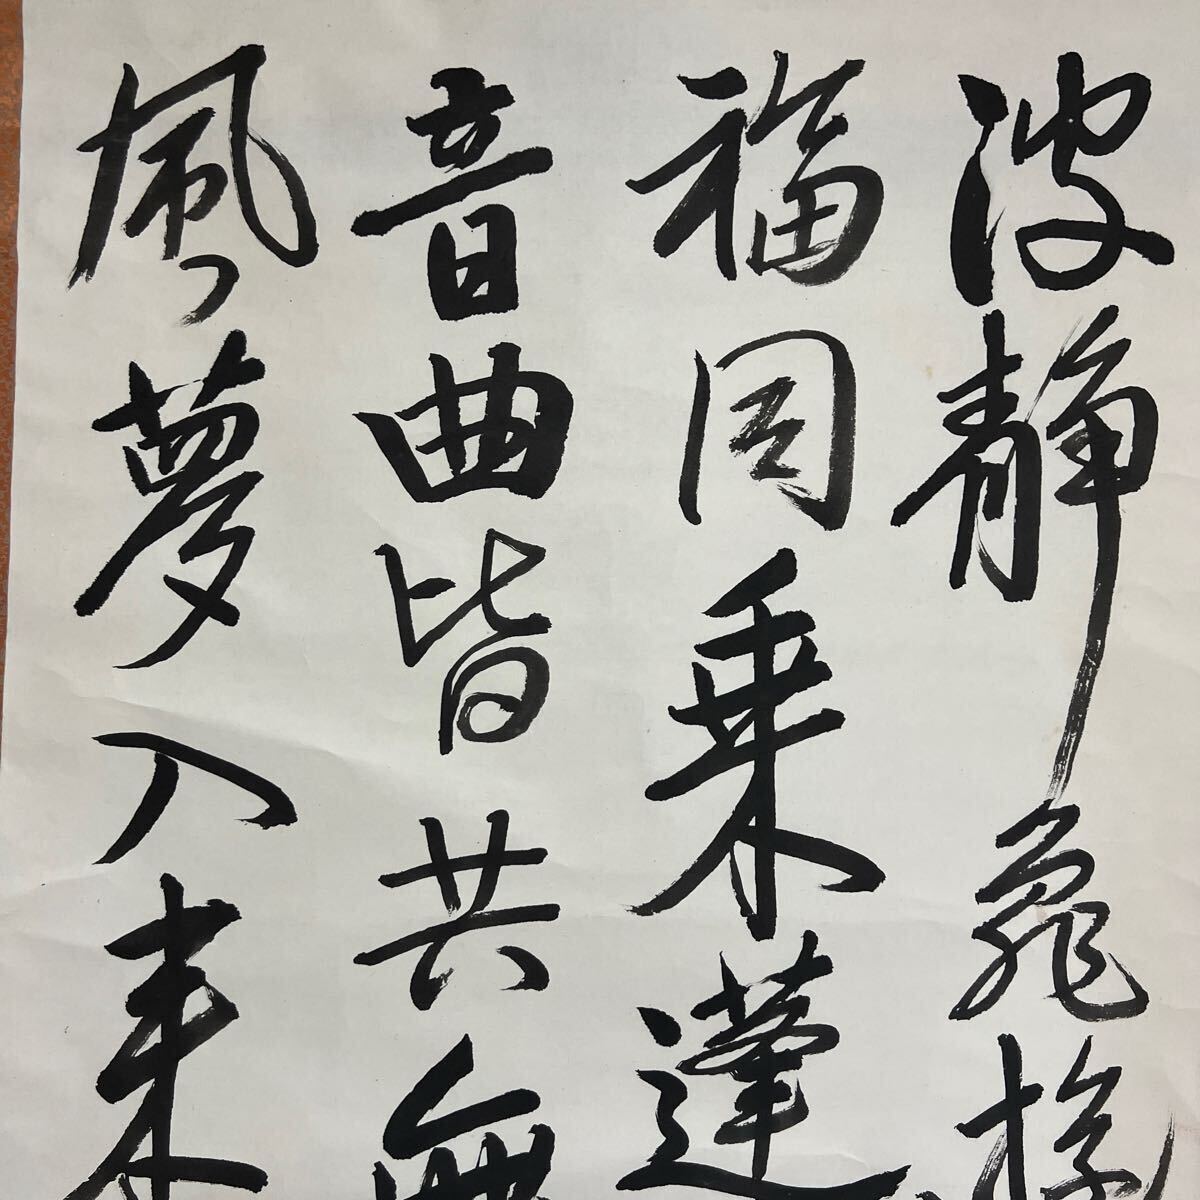 波静亀
福同乗蓬
音曲皆共無
風夢入来